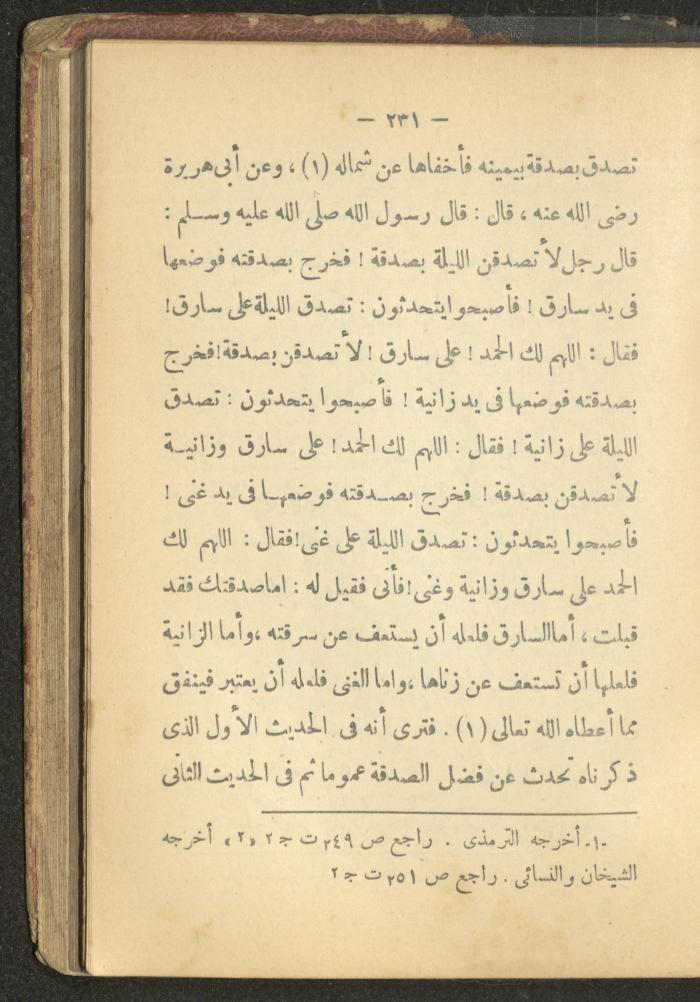 — ٢٣١ —
تصدق بصدقة بيمينه فأخفاها عن شماله (١) ، وعن أبى هريرة
رضى الله عنه ، قال : قال رسول الله صلى الله عليه وسلم :
قال رجل لأتصدقن الليلة بصدقة ! فخرج بصدقته فوضعها
فى يد سارق ! فأصبحوا يتحدثون : تصدق الليلة على سارق !
فقال : اللهم لك الحمد ! على سارق ! لأتصدقن بصدقة ! فخرج
بصدقته فوضعها فى يد زانية ! فأصبحوا يتحدثون : تصدق
الليلة على زانية ! فقال : اللهم لك الحمد ! على سارق وزانية
لأتصدقن بصدقة ! فخرج بصدقته فوضعها فى يد غنى !
فأصبحوا يتحدثون : تصدق الليلة على غنى ! فقال : اللهم لك
الحمد على سارق وزانية وغنى ! فأتى فقيل له : اما صدقتك فقد
قبلت ، أما السارق فلعله أن يستعف عن سرقته ، وأما الزانية
فلعلها أن تستعف عن زناها ، واما الغنى فلعله أن يعتبر فينفق
مما أعطاه الله تعالى (١) . فترى أنه فى الحديث الأول الذى
ذكرناه تحدث عن فضل الصدقة عموما ثم فى الحديث الثانى
-١- أخرجه الترمذى . راجع ص ٢٤٩ ت ج ٢ «٢» أخرجه
الشيخان والنسائى . راجع ص ٢٥١ ت ج ٢